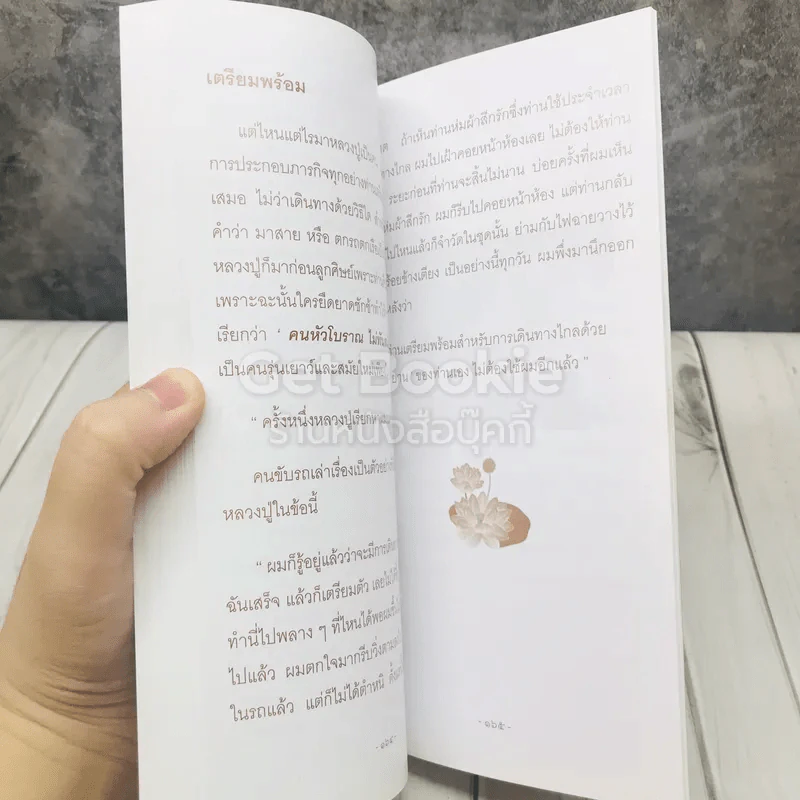 เตรียมพร้อม
แต่ไหนแต่ไรมาหลวงปู่เป็น
การประกอบภารกิจทุกอย่าง
เสมอ ไม่ว่าเดินทางด้วยวิธีใด
คำว่า มาสาย หรือ ตกรถตก
หลวงปู่ก็มาก่อนลูกศิษย์เพราะ
เพราะฉะนั้นใครยืดยาดชักช้า
เรียกว่า ‘ คนหัวโบราณ
เป็นคนรุ่นเยาว์และสมัยใหม่
“ ครั้งหนึ่งหลวงปู่เรียก
คนขับรถเล่าเรื่องเป็นตัวอย่าง
หลวงปู่ในข้อนี้
“ ผมก็รู้อยู่แล้วว่าจะมีการ
ฉันเสร็จ แล้วก็เตรียมตัว เลย
ทำนี่ไปพลาง ๆ ที่ไหนได้พอ
ไปแล้ว ผมตกใจมากรีบวิ่งตาม
ในรถแล้ว แต่ก็ไม่ได้ตำหนิ
- ๑๖๔ -
ถ้าเห็นท่านห่มผ้าสีกรักซึ่งท่านใช้ประจำเวลา
ทางไกล ผมไปเฝ้าคอยหน้าห้องเลย ไม่ต้องให้ท่าน
ระยะก่อนที่ท่านจะสิ้นไม่นาน บ่อยครั้งที่ผมเห็น
ห่มผ้าสีกรัก ผมก็รีบไปคอยหน้าห้อง แต่ท่านกลับ
ไปไหนแล้วก็จำวัดในชุดนั้น ย่ามกับไฟฉายวางไว้
ข้างเตียง เป็นอย่างนี้ทุกวัน ผมพึ่งมานึกออก
หลังว่า
ท่านเตรียมพร้อมสำหรับการเดินทางไกลด้วย
ของท่านเอง ไม่ต้องใช้ผมอีกแล้ว ”
- ๑๖๕ -
Get Bookie
ร้านหนังสือบุ๊คกี้